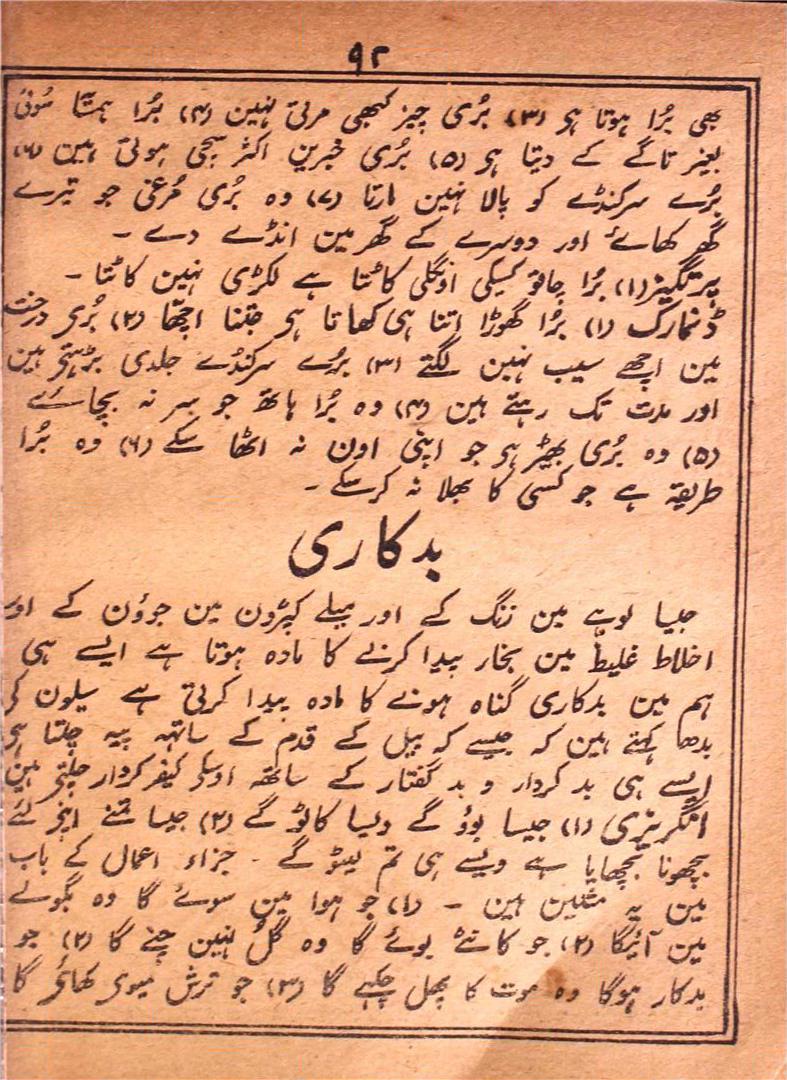 ۹۲
بھی بُرا ہوتا ہر (۳) بُری چیز کبھی مرتی نہین (۴) بُرا ہمیشہ سُوئی
بغیر تاگے کے دیتا ہر (۵) بُری خبرین اکثر سچی ہوتی ہین (۶)
بُرے سرکنڈے کو پالا نہین مارتا (۷) وہ بُری مُرغی جو تیرے
گھر کھائے اور دوسرے کے گھر مین انڈے دے -
پرتگیز (۱) بُرا چاقو کسیکی اونگلی کاٹتا ہے لکڑی نہین کاٹتا -
ڈنمارک (۱) بُرا گھوڑا اتنا ہی کھاتا ہر جتنا اچھا (۲) بُری درخت
مین اچھے سیب نہین لگتے (۳) بُرے سرکنڈے جلدی بڑہتے ہین
اور مدت تک رہتے ہین (۴) وہ بُرا ہاتھ جو سر نہ بچائے
(۵) وہ بُری بھیڑ ہر جو اپنی اون نہ اٹھا سکے (۶) وہ بُرا
طریقہ ہے جو کسی کا بھلا نہ کرسکے -
بدکاری
جیسا لوہے مین زنگ کے اور میلے کپڑون مین جوؤن کے اور
اخلاط غلیظ مین بخار پیدا کرنے کا مادہ ہوتا ہے ایسے ہی
ہم مین بدکاری گناہ ہونے کا مادہ پیدا کرتی ہے سیلون کی
بدھا کہتے ہین کہ جیسے کہ بیل کے قدم کے ساتہہ پیہ چلتا ہر
ایسے ہی بد کردار و بد گفتار کے ساتھ اوسکی کیفر کردار چلتی ہین
انگریزی (۱) جیسا بوؤ گے ویسا کاٹو گے (۲) جیسا تمنے اپنے لئے
بچھونا بچھایا ہے ویسے ہی تم لیٹو گے - جزاء اعمال کے باب
مین یہ مثلین ہین - (۱) جو ہوا مین سوئے گا وہ بگولے
مین آئیگا (۲) جو کانٹے بوئے گا وہ گل نہین چنے گا (۲) جو
بدکار ہوگا وہ موت کا پھل چکہے گا (۳) جو ترش میوی کھائے گا